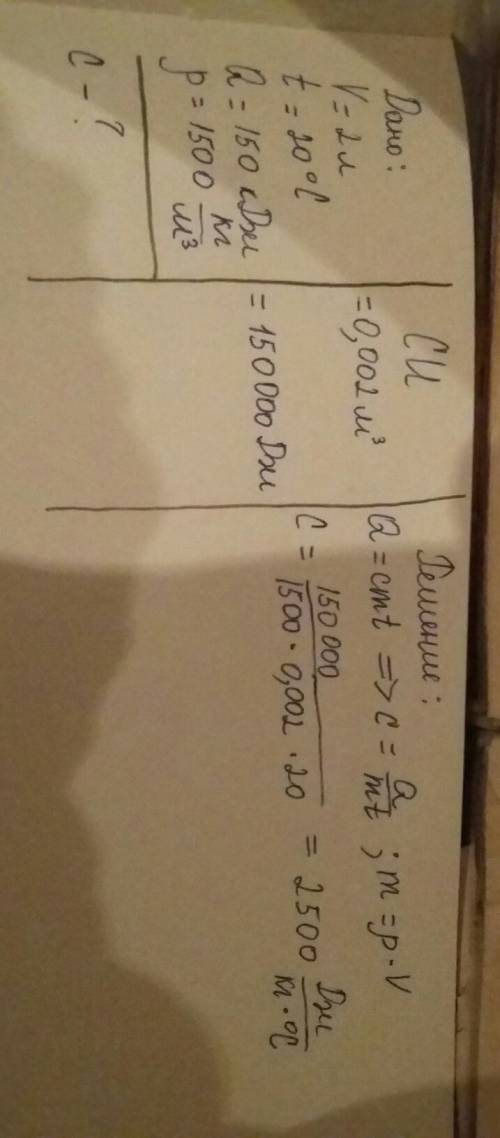 Дано:
V = 2 л
t = 20°C
Q = 150 кДж
ρ = 1500 кг/м³
C - ?
СИ
= 0,002 м³
= 150 000 Дж
Решение:
Q = cmt => c = Q/mt ; m = ρ · V
C = 150 000/1500 · 0,002 · 20 = 2500 Дж/кг · °C